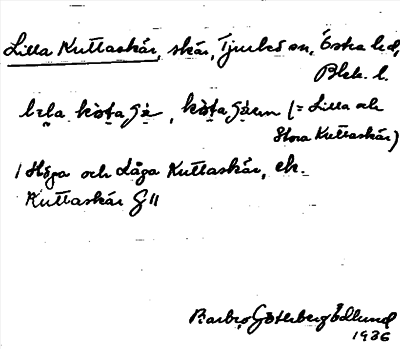 Lilla Kuttaskär, skär, Tjurkö sn, Östra hd,
Blek. l.
kɷta , kɷta (= Lilla och
Stora Kuttaskär)
/ Höga och Låga Kuttaskär, ek.
Kuttaskär G II
Barbro Göterberg Edlund
1936